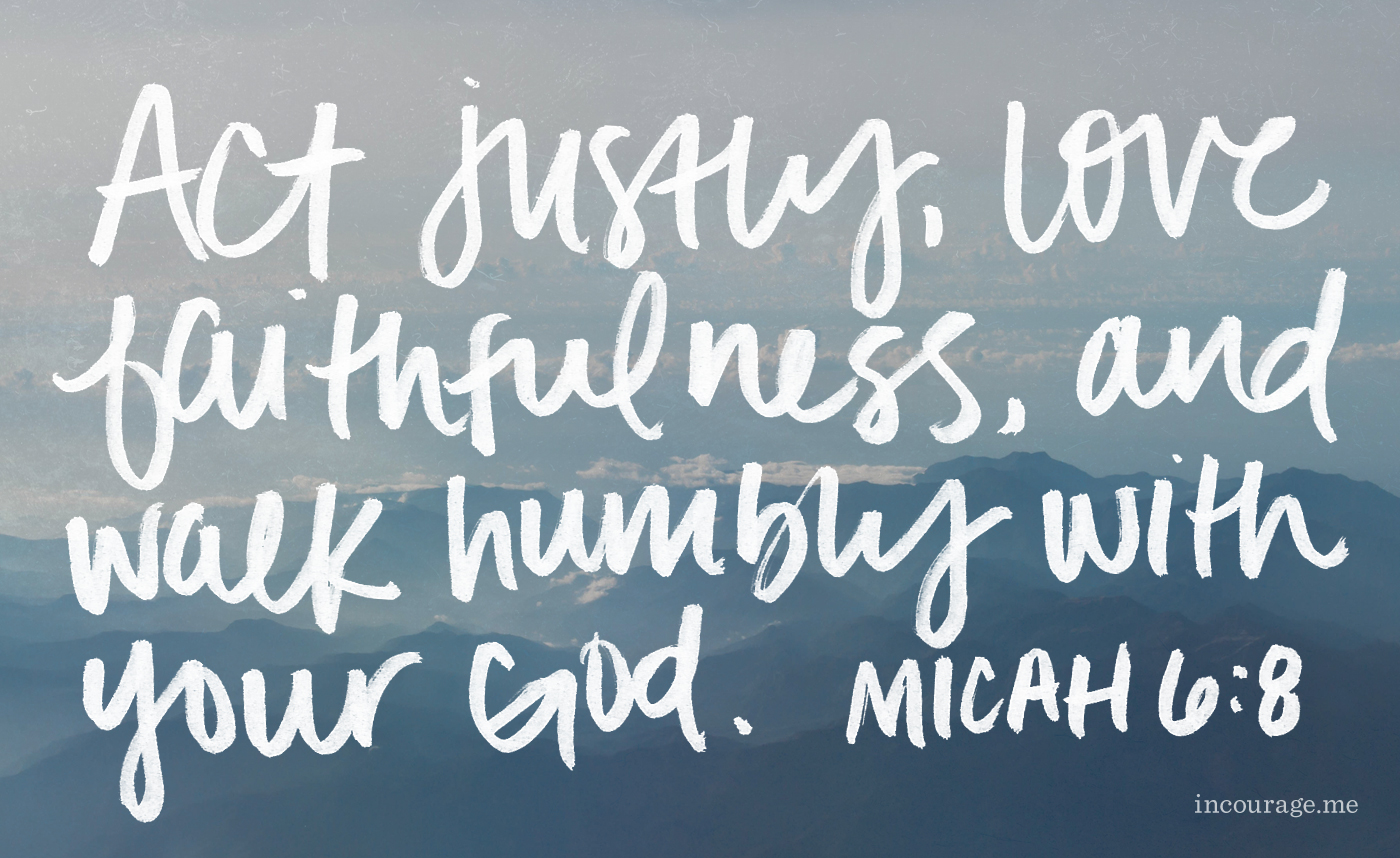 Act justly, love
faithfulness, and
walk humbly with
your God. MICAH 6:8
incourage.me